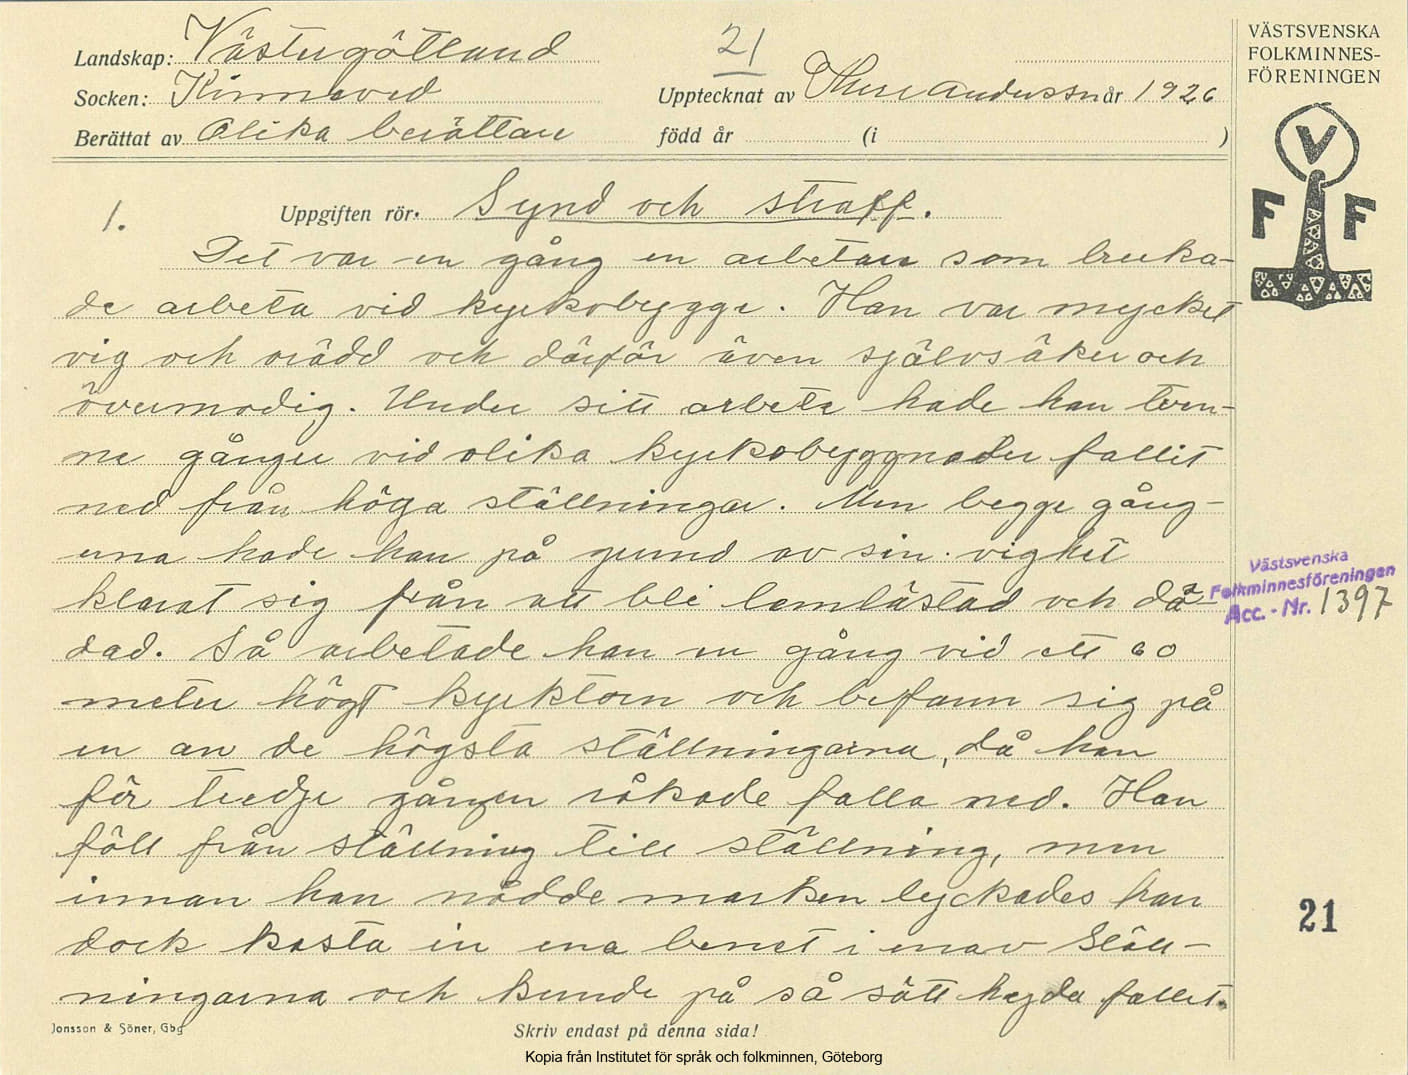 Landskap: Västergötland
Socken: Kinneved
Berättat av Olika berättare
21
Upptecknat av Ture Andersson år 1926
född år (i )
VÄSTSVENSKA
FOLKMINNES-
FÖRENINGEN
V
F F
1. Uppgiften rör: Synd och straff.
Det var en gång en arbetare som bruka-
de arbeta vid kyrkobygge. Han var mycket
vig och orädd och därför även självsäker och
övermodig. Under sitt arbete hade han tven-
ne gånger vid olika kyrkobyggnader fallit
ned från höga ställningar. Men begge gång-
erna hade han på grund av sin vighet
klarat sig från att bli lemlästad och dö-
dad. Så arbetade han en gång vid ett 60
meter högt kyrktorn och befann sig på
en av de högsta ställningarna, då han
för tredje gången råkade falla ned. Han
föll från ställning till ställning, men
innan han nådde marken lyckades han
dock kasta in ena benet i en av ställ-
ningarna och kunde på så sätt hejda fallet.
Västsvenska
Folkminnesföreningen
Acc. - Nr. 1397
21
Jonsson & Söner, Gbg
Skriv endast på denna sida!
Kopia från Institutet för språk och folkminnen, Göteborg